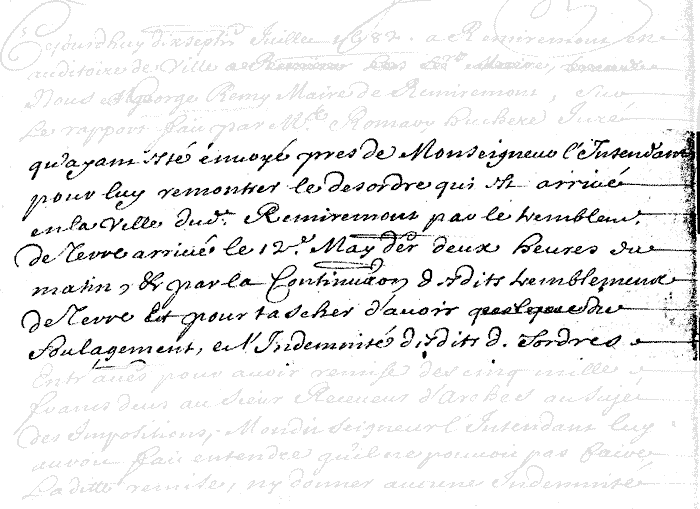 Cejourdhuy dixseptie Juillet 1682. a Remiremont en
auditoire de Ville
Nous George Remy Maire de Remiremont, Sur
Le rapport fait par Mre Romary huchere Juré
qu'ayant esté énvoyé pres de Monseigneur l'Intendant
pour luy remontrer le desordre qui est arrivé
en la Ville dud. Remiremont par le tremblemt.
de Terre arrivée le 12e. May der deux heures du
matin, & par la Continuaon desdits tremblemens
de Terre Et pour tascher d'avoir quelque
Soulagement, et l'Indemnité desdits desordres
Entravés pour avoir remise des cinq mille
francs deus au sieur Receveur d'Arches au sujet
des Impositions, Mondit seigneur l'Intendant luy
auroit fait entendre qu'il ne pouvoit pas faire
Laditte remise, ny donner aucune Indemnité